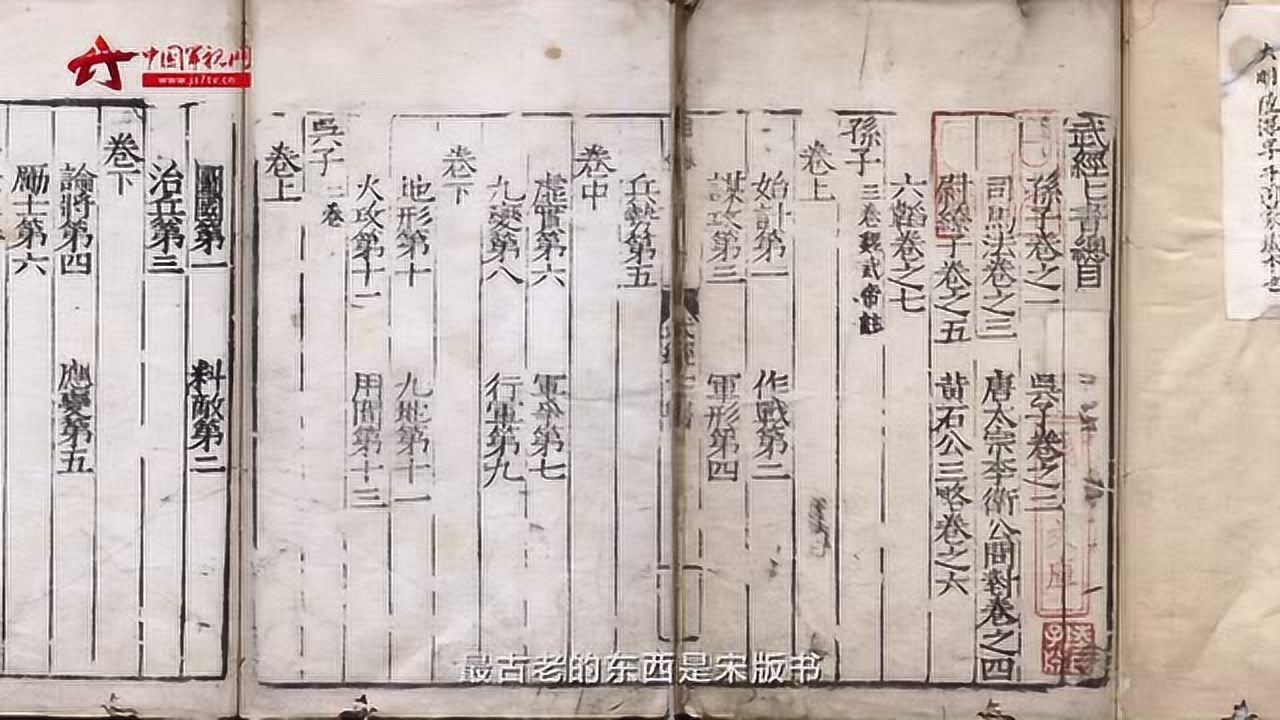 中国军视网
www.js7tv.cn
武經七書總目
孫子卷之一 吳子卷之二
司馬法卷之三 唐太宗李衛公問對卷之四
尉繚子卷之五 黄石公三略卷之六
六韜卷之七
孫子 三卷魏武帝註
卷上
始計第一 作戰第二
謀攻第三 軍形第四
兵勢第五
卷中
虛實第六 軍爭第七
九變第八 行軍第九
卷下
地形第十 九地第十一
火攻第十二 用間第十三
吳子 二卷
卷上
圖國第一 料敵第二
治兵第三
卷下
論將第四 應變第五
勵士第六
文庫
最古老的东西是宋版书